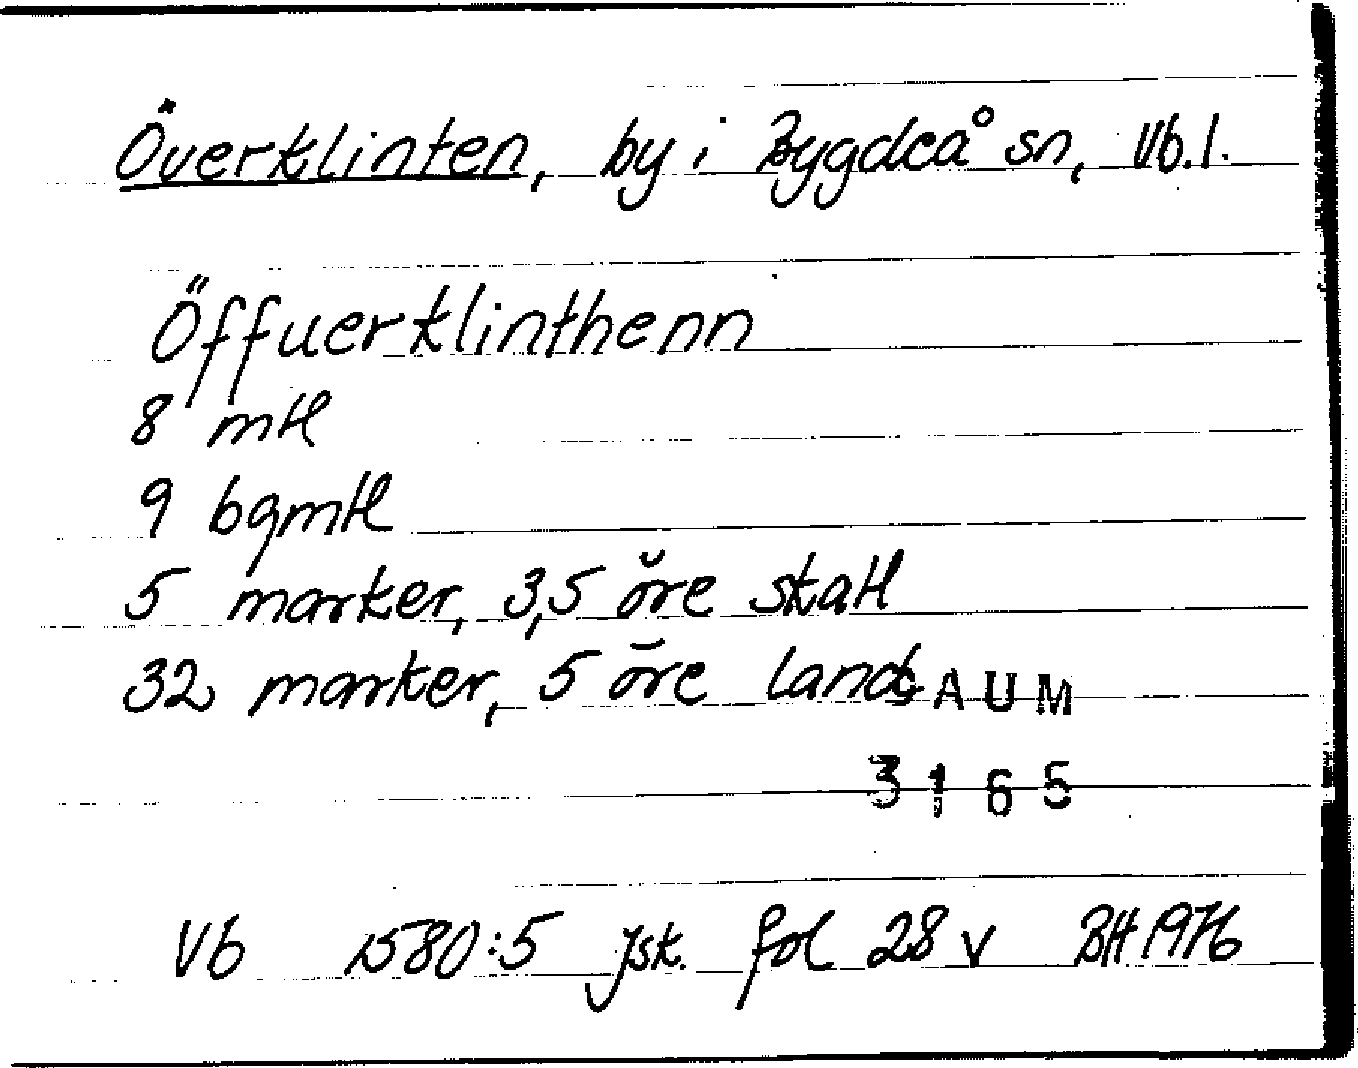 Överklinten, by i Bygdeå sn, Vb.l.
Öffuerklinthenn
8 mtl
9 bgmtl
5 marker, 3,5 öre skatt
32 marker, 5 öre land
DAUM
3165
Vb 1580:5 jsk. fol 28 v BH 1976